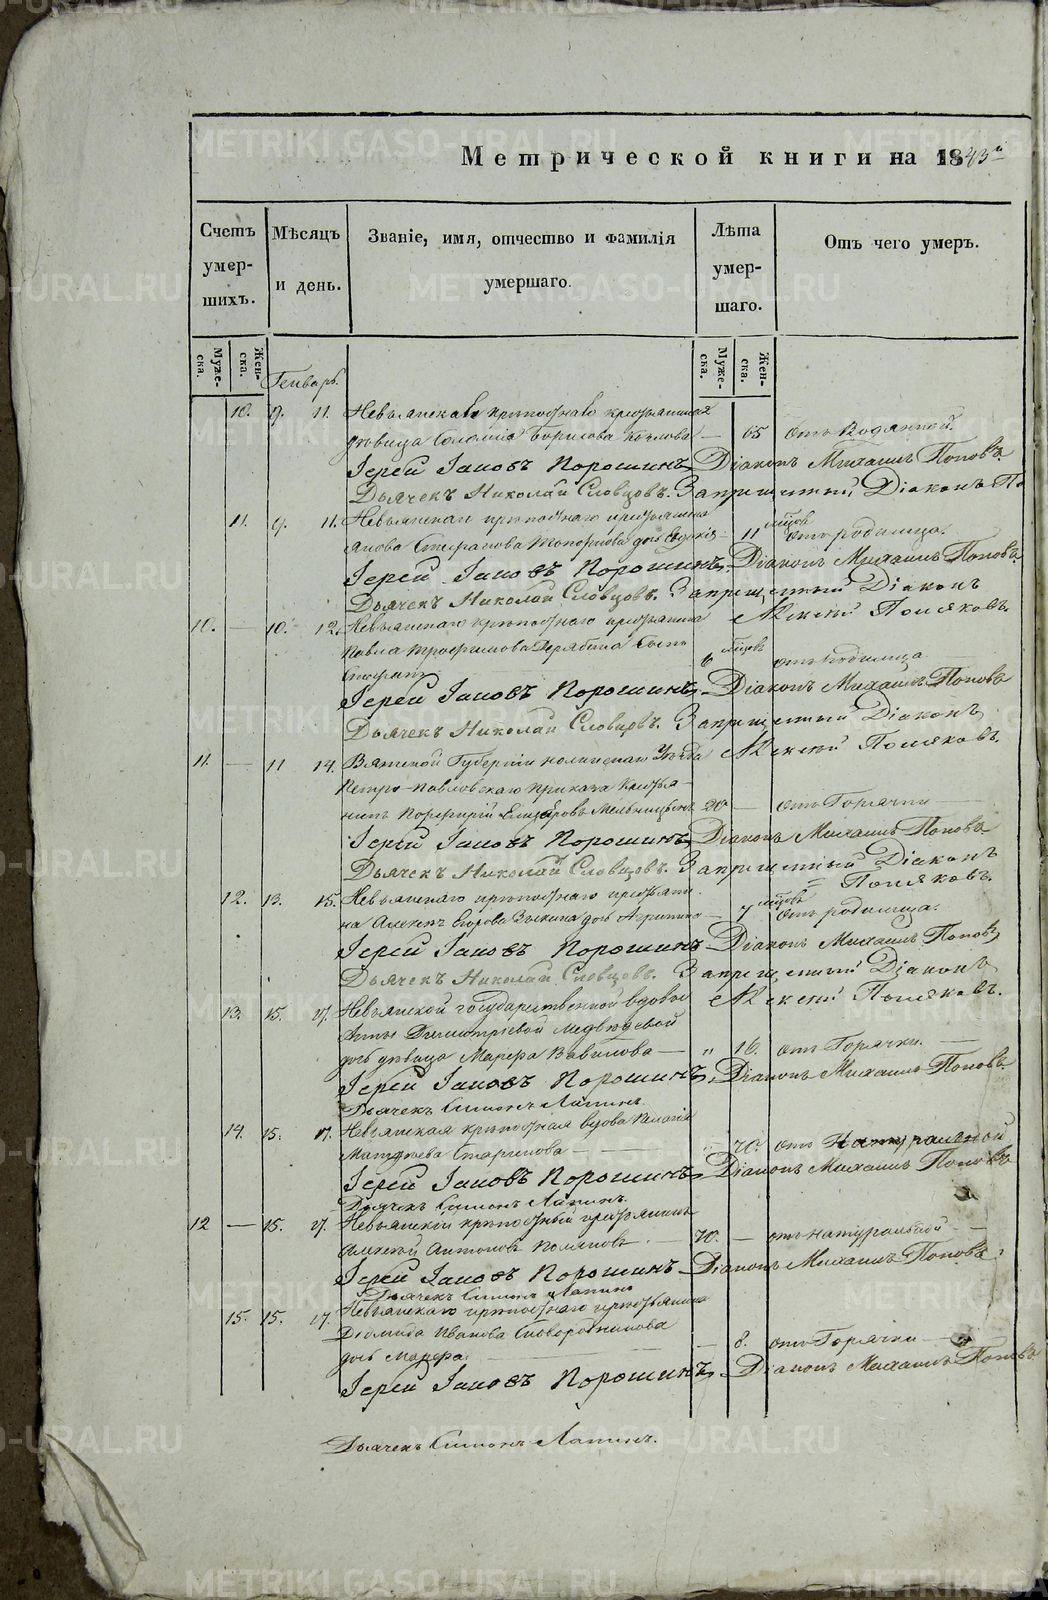 Метрической книги на 1843й
Счетъ умер-шихъ. Мѣсяцъ и день. Званіе, имя, отчество и фамилія умершаго. Лѣта умер-шаго. Отъ чего умеръ.
Муже-ска. Жен-ска. Муже-ска. Жен-ска.
Генварь.
10. 9. 11. Невьянскаго крѣпостнаго крестьянина
дѣвица Соломія Борисова Козлова — 65 отъ Водянной.
Іерей Іаковъ Порошинъ, Діаконъ Михаилъ Поповъ.
Дьячекъ Николай Словцовъ. Запрещенный Діаконъ По
11. 9. 11. Невьянскаго крѣпостнаго крестьянина
Якова Стефанова дочь Евдокія — 11 мѣсяцовъ отъ родимца.
Іерей Іаковъ Порошинъ, Діаконъ Михаилъ Поповъ.
Дьячекъ Николай Словцовъ. Запрещенный Діаконъ
Алексѣй Поляковъ.
10. — 10. 12. Невьянскаго крѣпостнаго крестьянина
Павла Трофимова Дерябина сынъ
Стефанъ 6 мѣсяцовъ отъ родимца
Іерей Іаковъ Порошинъ, Діаконъ Михаилъ Поповъ
Дьячекъ Николай Словцовъ. Запрещенный Діаконъ
Алексѣй Поляковъ.
11. — 11 14. Вятской Губерніи Нолинскаго Уѣзда
Петро-Павловскаго приказа Крестья-
нинъ Порфирій Елизаровъ 20 — отъ Горячки —
Іерей Іаковъ Порошинъ, Діаконъ Михаилъ Поповъ
Дьячекъ Николай Словцовъ. Запрещенный Діаконъ
Поляковъ.
12. 13. 15. Невьянскаго крѣпостнаго крестьяни-
на Алексѣя Егорова Зыкина дочь — 7 мѣсяцовъ отъ родимца.
Іерей Іаковъ Порошинъ Діаконъ Михаилъ Поповъ
Дьячекъ Николай Словцовъ. Запрещенный Діаконъ
Алексѣй Поляковъ.
13. 15. 17. Невьянской государственной вдовы
Анны Димитріевой Медвѣдевой
дочь дѣвица Марфа Вавилова — „ 16. отъ Горячки. —
Іерей Іаковъ Порошинъ, Діаконъ Михаилъ Поповъ.
Дьячекъ Симонъ Лапинъ.
14. 15. 17. Невьянская крѣпостная вдова Пелагія
Матѣева Старикова — „ 70. отъ Натуральной
Іерей Іаковъ Порошинъ, Діаконъ Михаилъ Поповъ
Дьячекъ Симонъ Лапинъ.
12 — 15. 17. Невьянскій крѣпостный крестьянинъ
Алексѣй Антоновъ Поляковъ — 70. — отъ натуральной —
Іерей Іаковъ Порошинъ Діаконъ Михаилъ Поповъ
Дьячекъ Симонъ Лапинъ
15. 15. 17. Невьянскаго крѣпостнаго крестьянина
Діомида Иванова Сковородникова
дочь Марфа. — 8. отъ Горячки —
Іерей Іаковъ Порошинъ, Діаконъ Михаилъ Поповъ
Дьячекъ Симонъ Лапинъ.